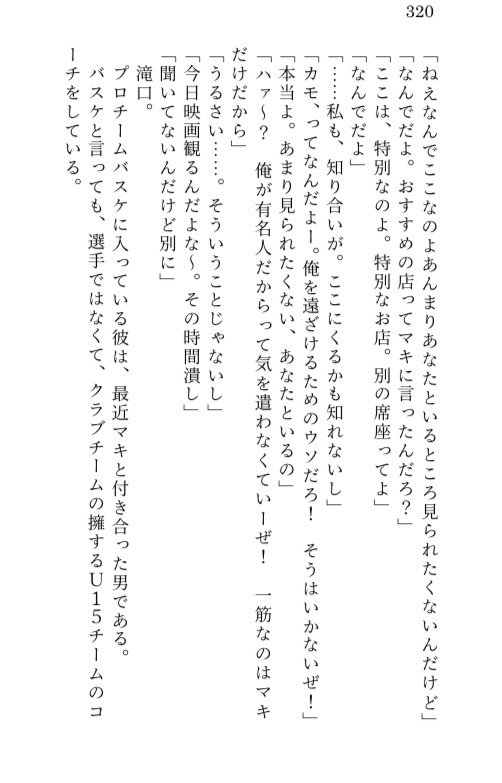 320
「ねえなんでここなのよあんまりあなたといるところ見られたくないんだけど」
「なんでだよ。おすすめの店ってマキに言ったんだろ？」
「ここは、特別なのよ。特別なお店。別の席座ってよ」
「なんでだよ」
「……私も、知り合いが。ここにくるかも知れないし」
「カモ、ってなんだよー。俺を遠ざけるためのウソだろ！　そうはいかないぜ！」
「本当よ。あまり見られたくない、あなたといるの」
「ハァ～？　俺が有名人だからって気を遣わなくていーぜ！　一筋なのはマキ
だけだから」
「うるさい……。そういうことじゃないし」
「今日映画観るんだよな～。その時間潰し」
「聞いてないんだけど別に」
滝口。
プロチームバスケに入っている彼は、最近マキと付き合った男である。
バスケと言っても、選手ではなくて、クラブチームの擁するＵ１５チームのコ
ーチをしている。